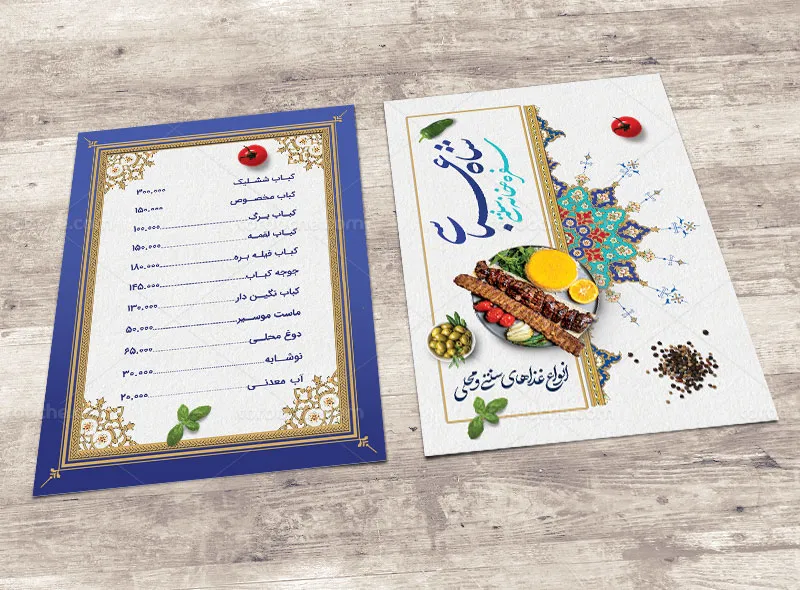 کباب ششلیک ۳۰۰,۰۰۰
کباب مخصوص ۱۵۰.۰۰۰
کباب برگ ۱۰۰.۰۰۰
کباب لقمه ۱۵۰.۰۰۰
کباب فیله بره ۱۸۰.۰۰۰
جوجه کباب ۱۴۵.۰۰۰
کباب نگین دار ۱۳۰.۰۰۰
ماست موسیر ۵۰.۰۰۰
دوغ محلی ۶۵.۰۰۰
نوشابه ۳۰.۰۰۰
آب معدنی ۲۰,۰۰۰
شاه عباسی
سفره خانه سنتی
انواع غذاهای سنتی و محلی